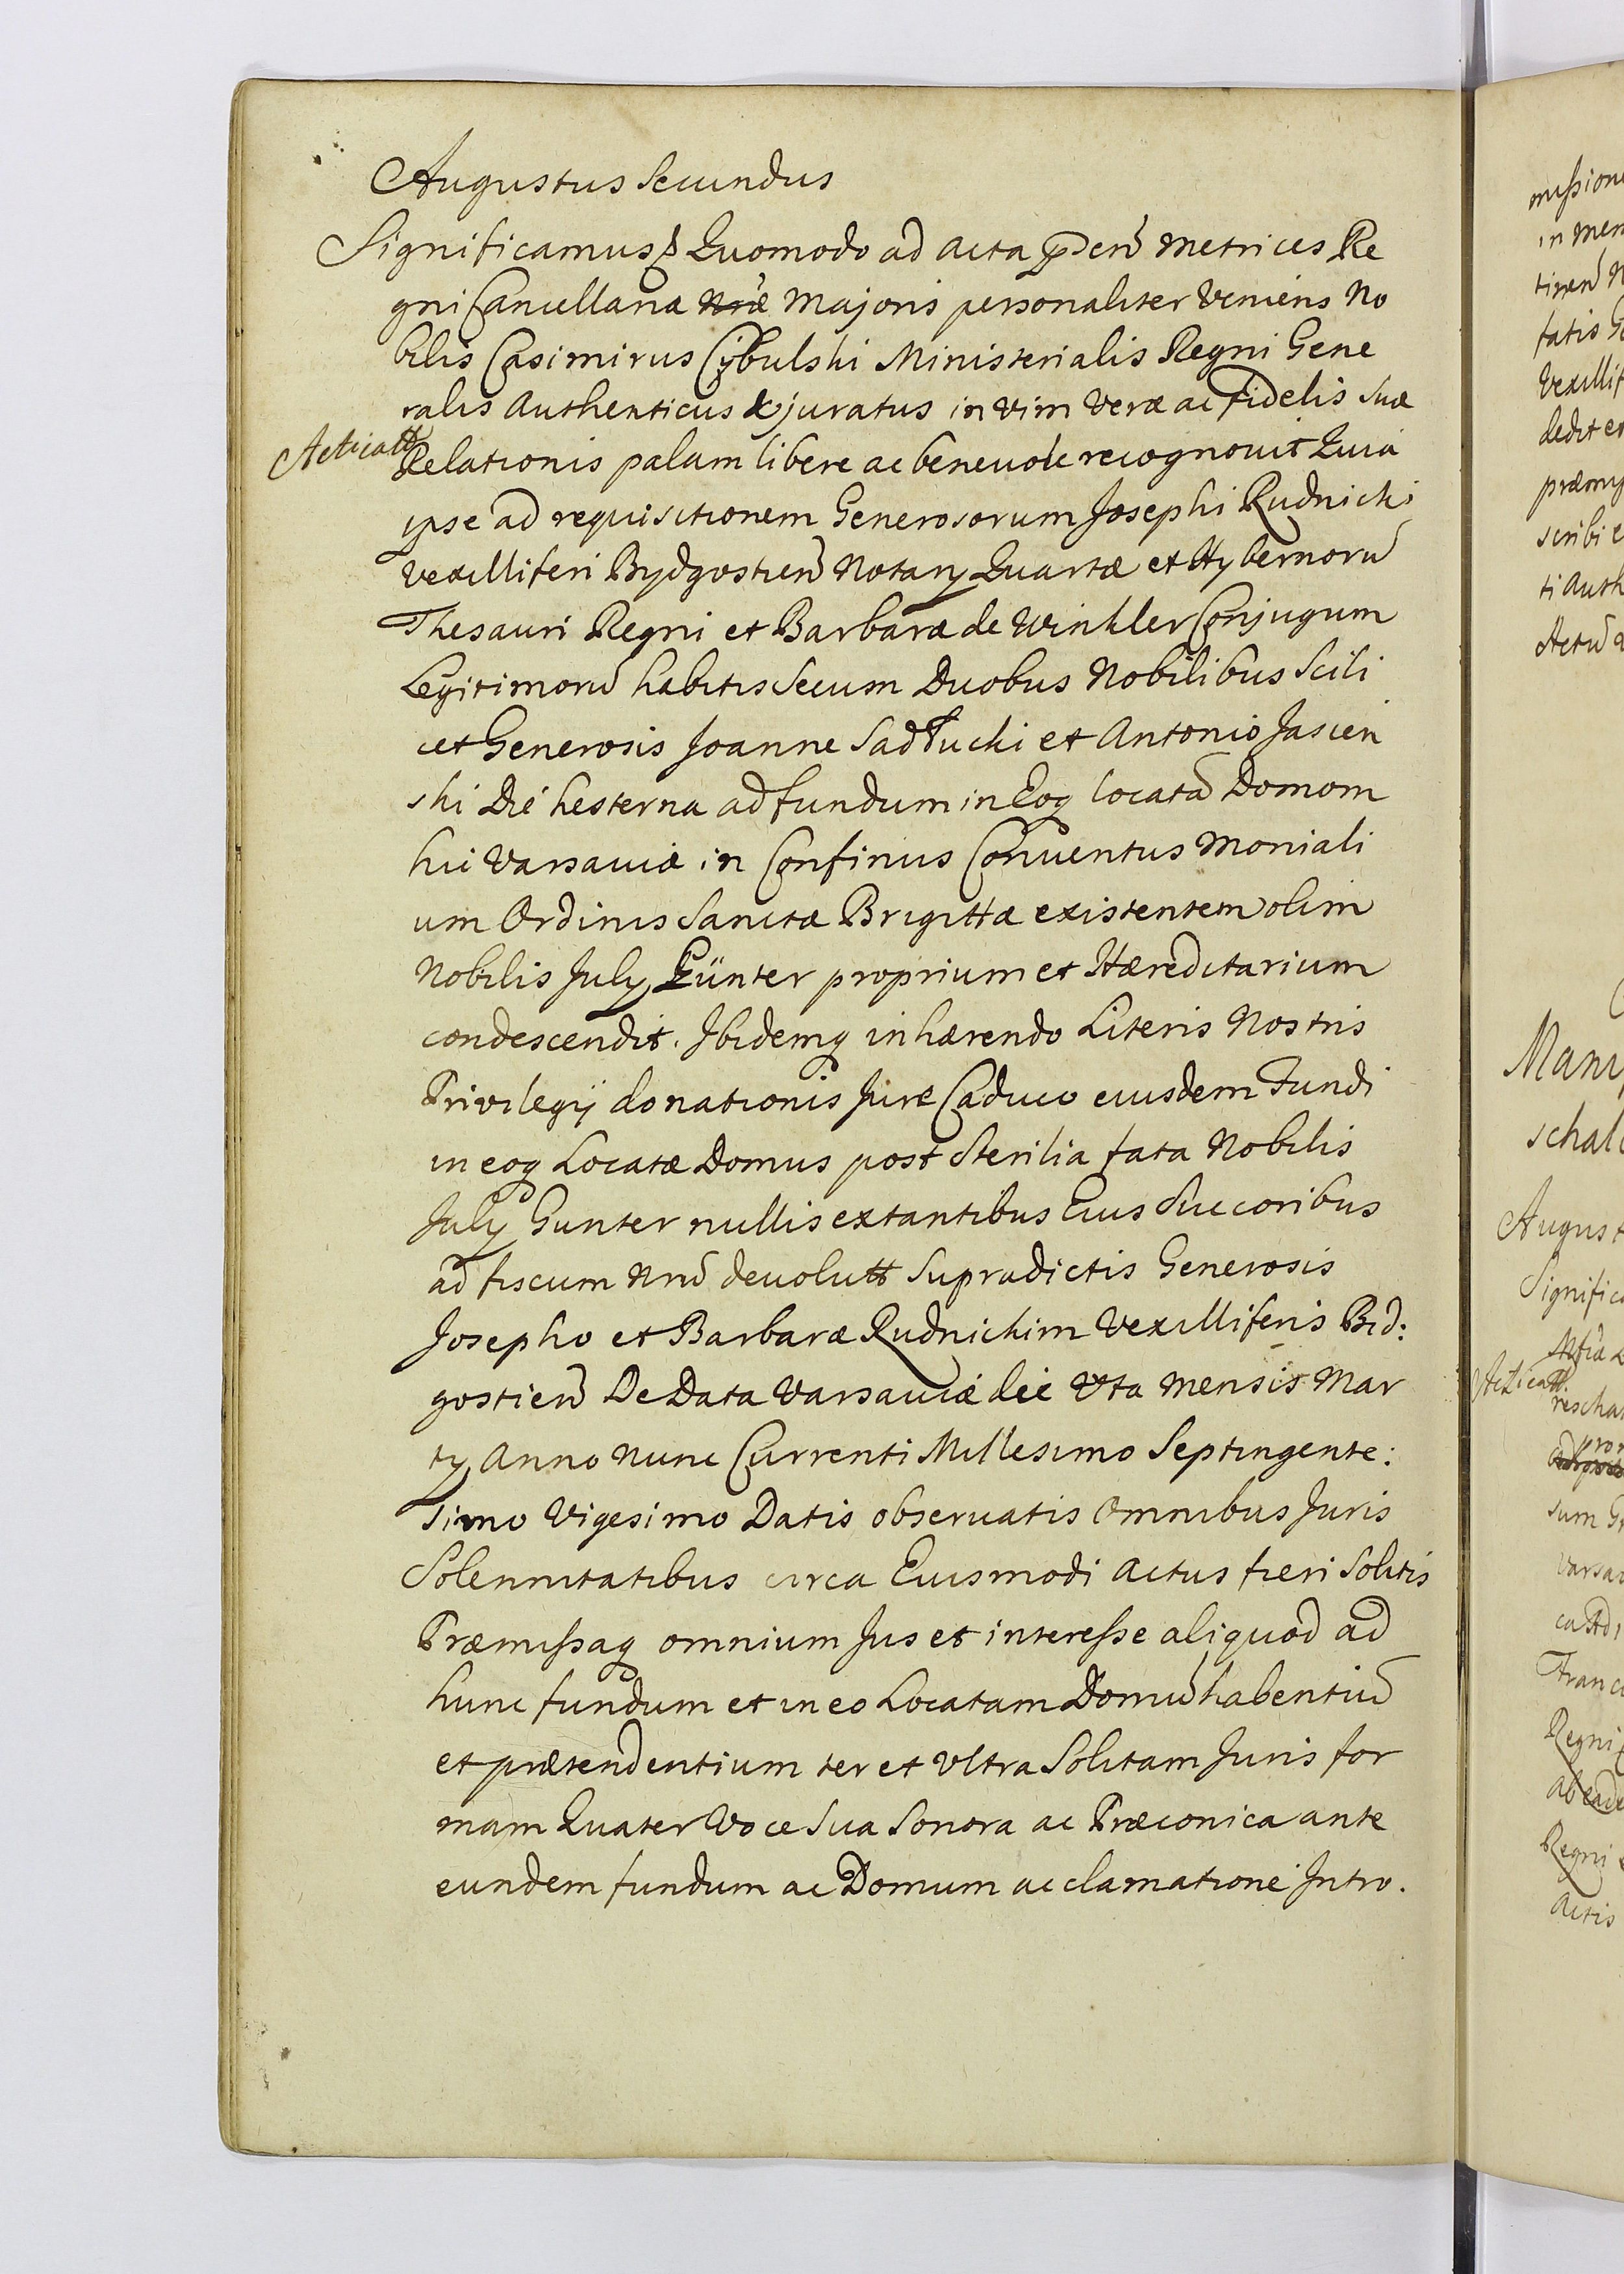 Augustus Secundus
Significamus Quomodo ad acta pñden̄ Metrices Re
gni Cancellariæ Nræ Majoris personaliter Veniens No
bilis Casimirus Cybulski Ministerialis Regni Gene
ralis Authenticus & juratus in vim veræ ac fidelis suæ
Acticatt
Relationis palam libere ac beneuole recognouit Quia
ipse ad requisitionem Generosorum Josephi Rudnicki
Vexilliferi Bydgostien̄ Notarÿ Quartæ et Hybernorū
Thesauri Regni et Barbaræ de Winkler Conjugum
Legitimorū habitis secum Duobus Nobilibus Scili
cet Generosis Joanne Sadłucki et Antonio Jasien
ski Die hesterna ad fundum in Eoq locatā Domom
hic Varsaviæ in Confinÿs Conuentus Moniali
um Ordinis Sanctæ Brigittæ existentem olim
Nobilis Julÿ Günter proprium et Hæreditarium
condescendit. Ibidemq inhærendo Literis Nostris
Privilegÿ donationis Jure Caduco eiusdem Fundi
in eoq Locatæ Domus post Sterilia fata Nobilis
Julÿ Gunter nullis extantibus Eius Succoribus
ad fiscum Nrū deuolutt Supradictis Generosis
Josepho et Barbaræ Rudnickim Vexilliferis Bid:
gostien̄ De Data Varsauiæ die Vta Mensis Mar
tÿ Anno Nunc Currenti Millesimo Septingente:
simo Vigesimo Datis observatis Omnibus Juris
Solennitatibus circa Eiusmodi actus fieri Solitis
Præmißaq omnium Jus et intereße aliquod ad
hunc fundum et in eo Locatam Domū habentiū
et prætendentium ter et Vltra Solitam Juris for
mam Quater Voce Sua Sonora ac Præconica ante
eundem fundum ac Domum acclamatione Intro.